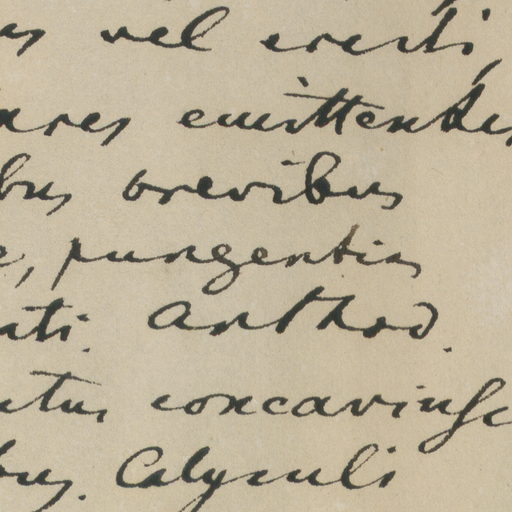 vel erecti,
emittentes
bus brevibus
pungentis
ati. Anthod.
concavius
bus. Calyculi